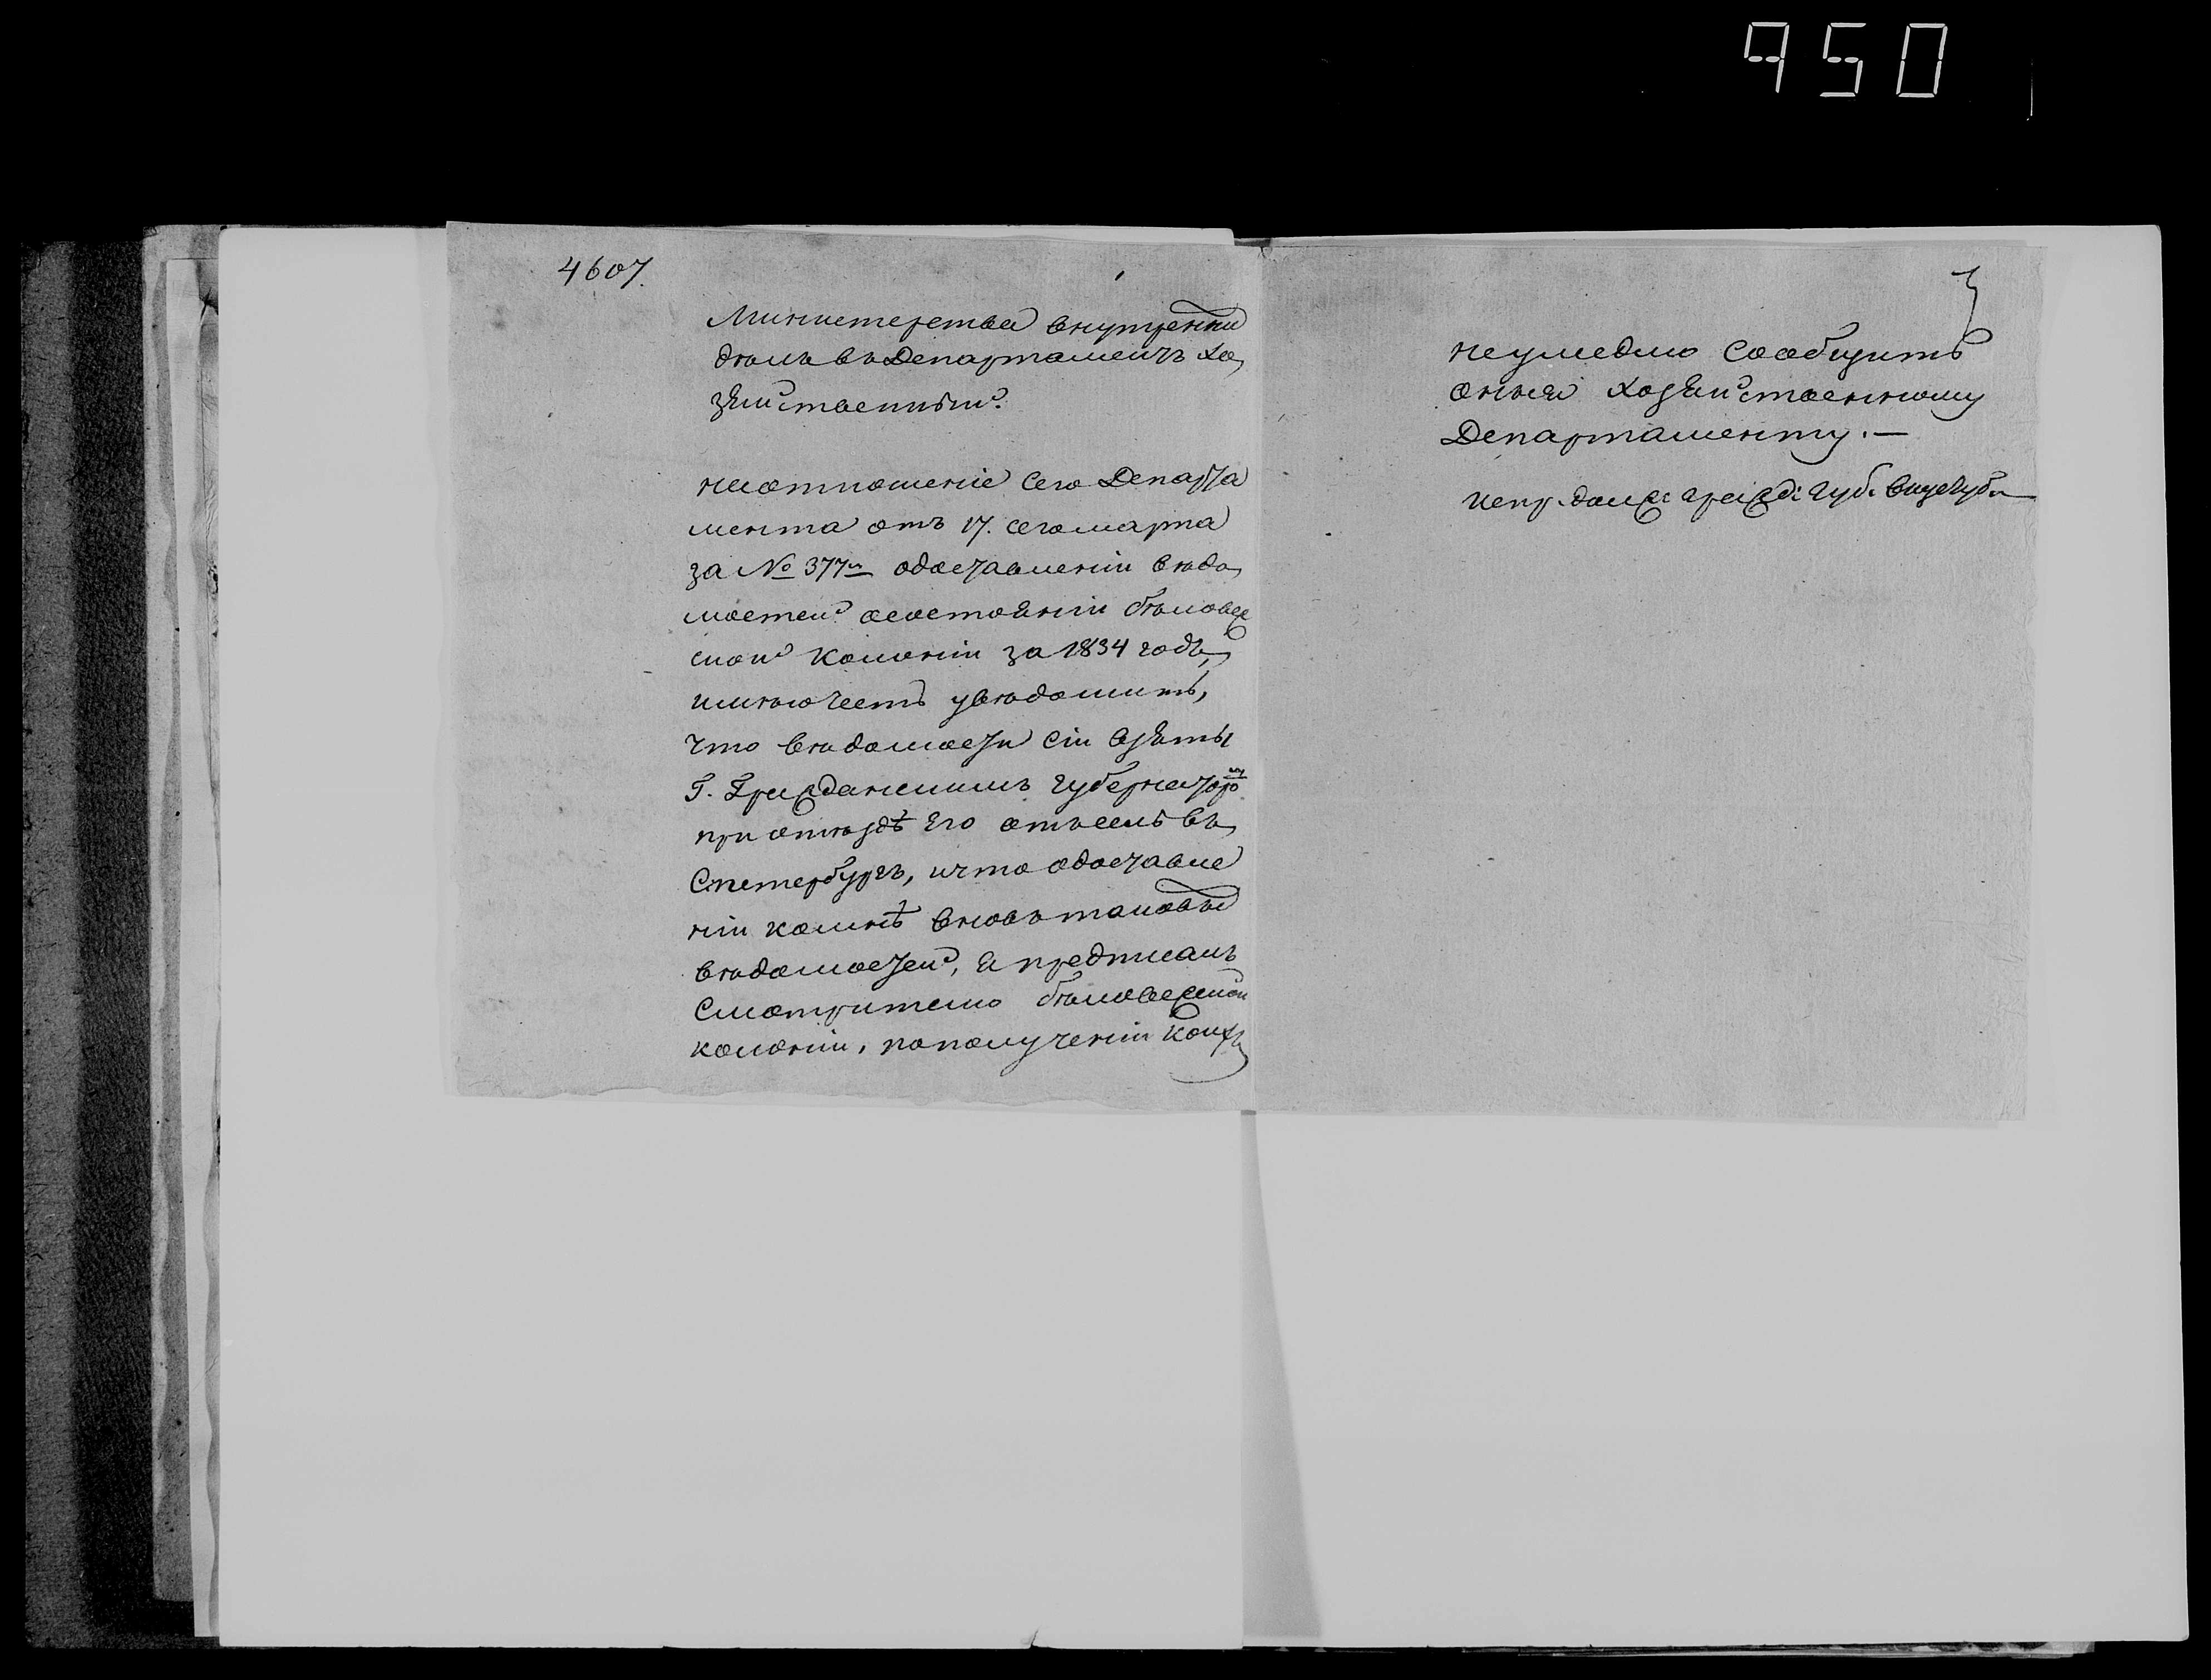 950
4607.
Министерства внутренни
дѣлъ въ Департаментъ Хо
зяйственный.
на отношеніе сего Департа
мента отъ 17. сего марта
за № 377м одоставленіи вѣдо
мостей осостояніи бѣловеж
ской колоніи за 1834 годъ,
имѣю честь увѣдомить,
что вѣдомости сіи взяты
Г. Гражданскимъ губернаторомъ
при отъѣздѣ Его отъселѣ въ
С.петербургъ, ичто одоставле
ніи комнѣ вновь таковы
вѣдомостей, я предписалъ
Смотрителю бѣловежской
колоніи, пополученіи коихъ
3
неумедлю сообщить
оныя Хозяйственному
Департаменту.—
испр. долж: гражд: губ. вицегуб.